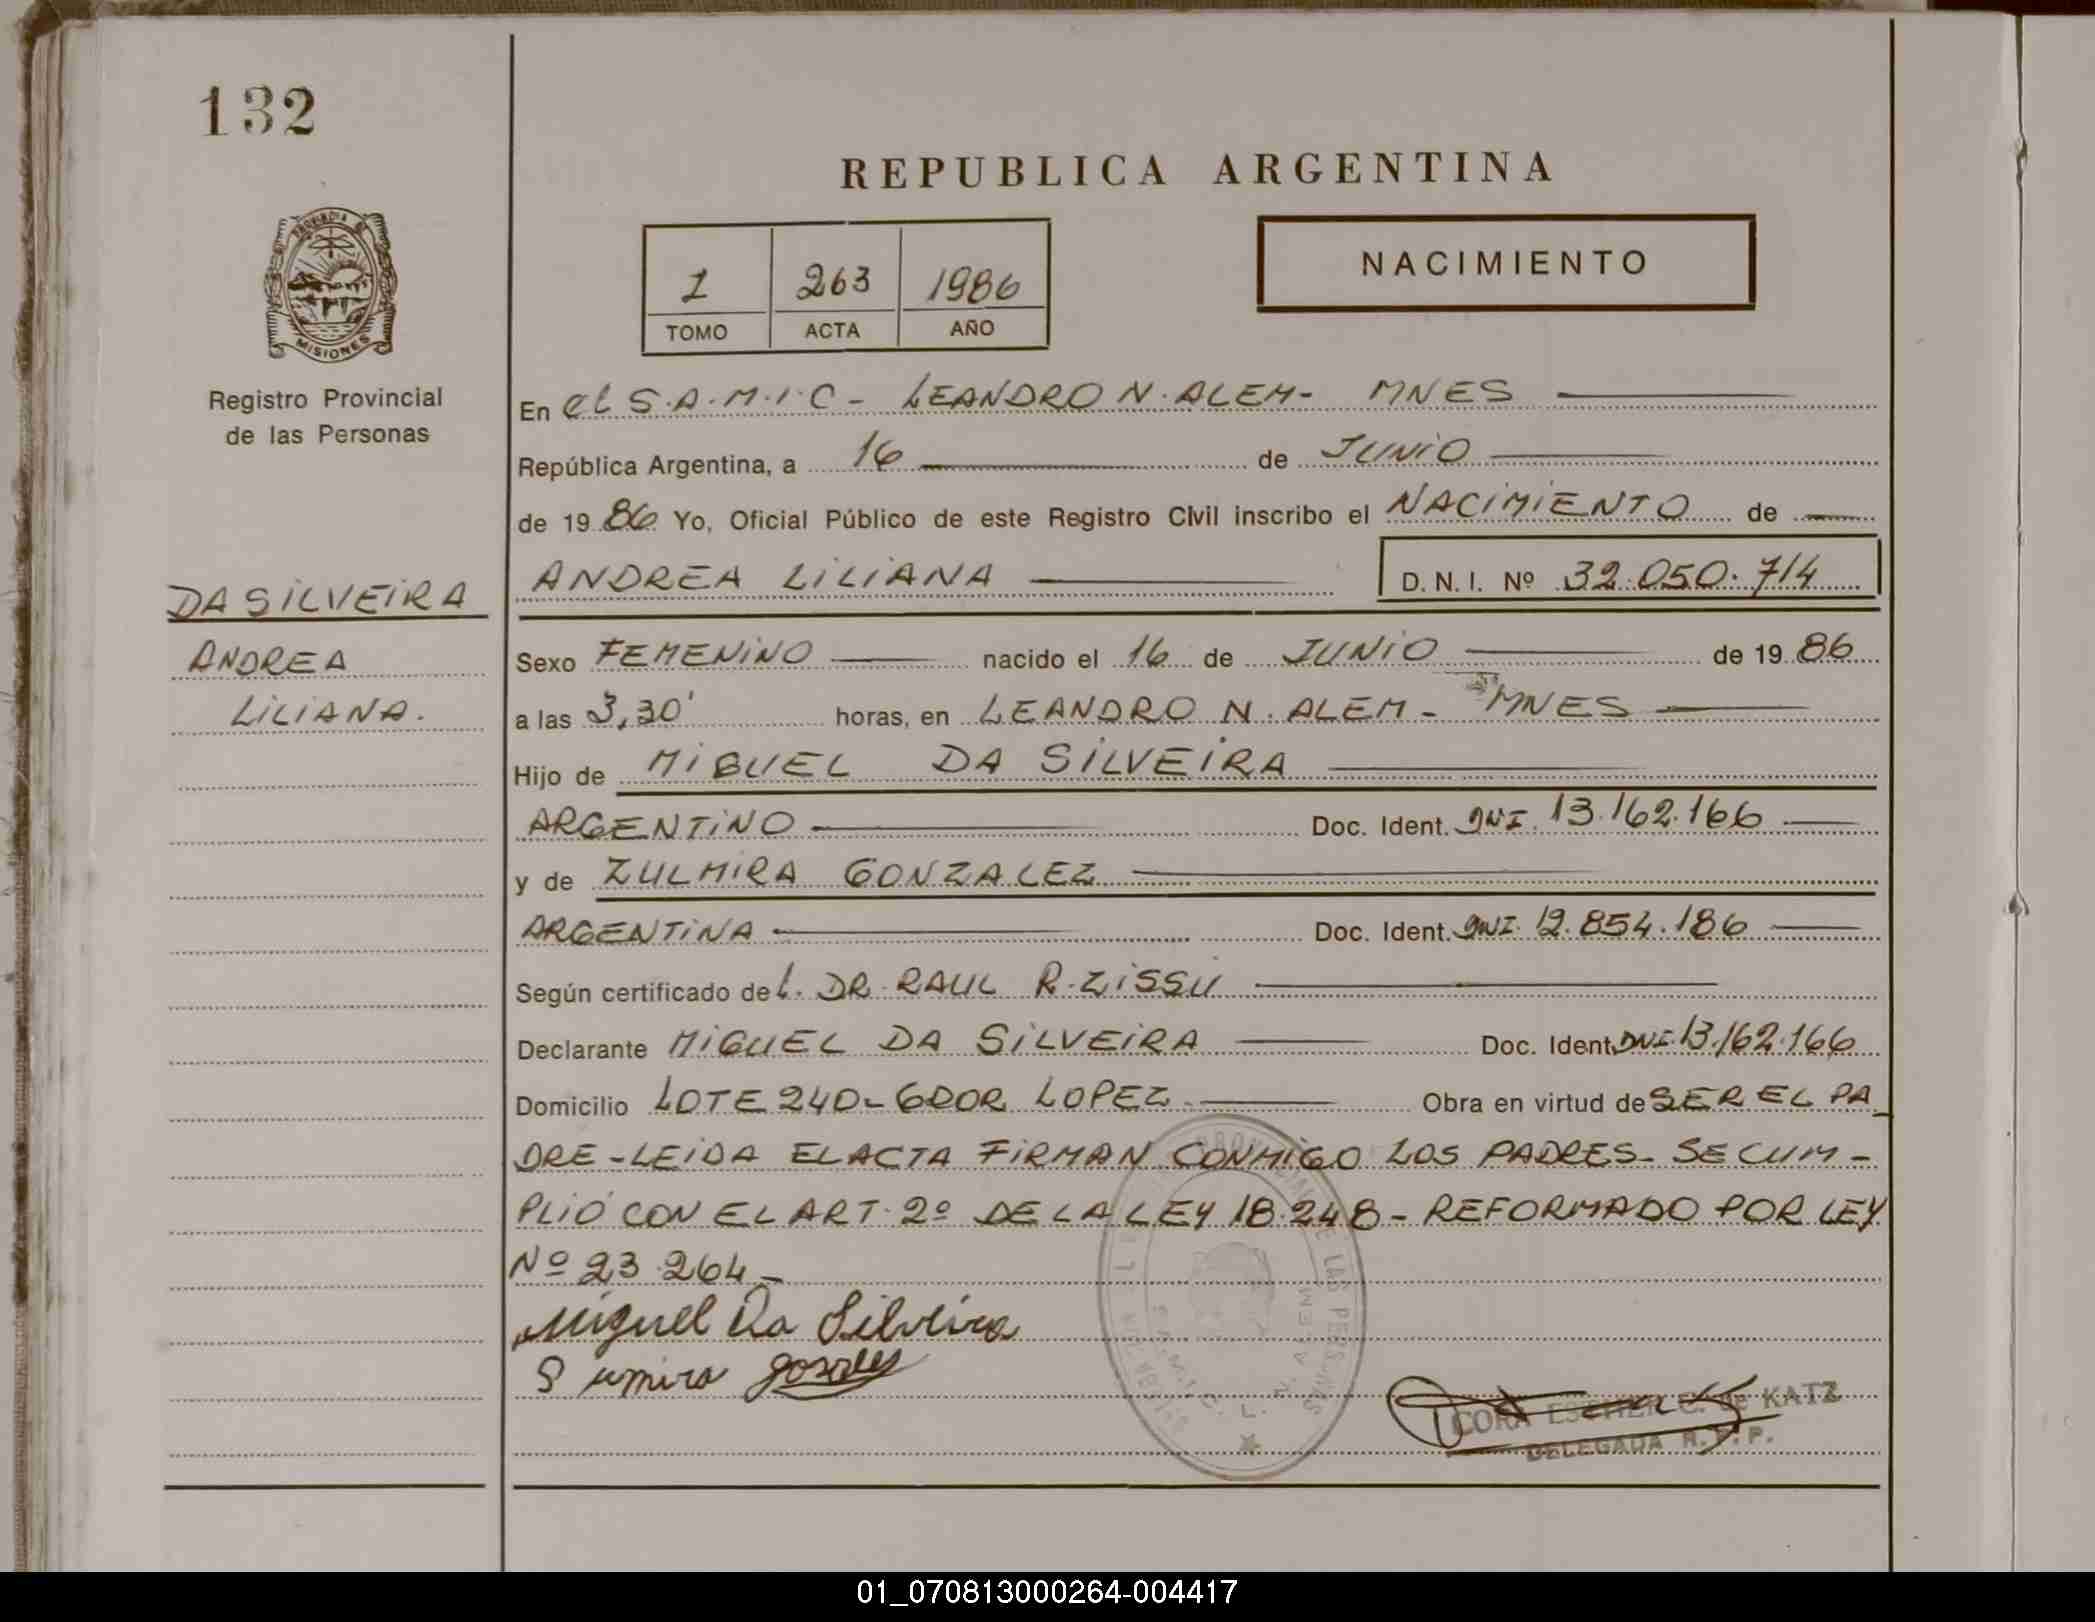 132
REPUBLICA ARGENTINA
NACIMIENTO
1 263 1986
TOMO ACTA AÑO
PROVINCIA DE
MISIONES
Registro Provincial
de las Personas
En el S.A.M.I.C - LEANDRO N. ALEM- MNES
República Argentina, a 16 de JUNIO
de 1986 Yo, Oficial Público de este Registro Civil inscribo el NACIMIENTO de
ANDREA LILIANA D. N. I. Nº 32.050.714
DA SILVEIRA
ANDREA
LILIANA.
Sexo FEMENINO nacido el 16 de JUNIO de 1986
a las 3,30' horas, en LEANDRO N. ALEM - MNES
Hijo de MIGUEL DA SILVEIRA
ARGENTINO Doc. Ident. DNI. 13.162.166
y de ZULMIRA GONZALEZ
ARGENTINA Doc. Ident. DNI. 12.854.186
Según certificado del. DR. RAUL R. ZISSU
Declarante MIGUEL DA SILVEIRA Doc. Ident. DNI. 13.162.166
Domicilio LOTE 240- GDOR LOPEZ Obra en virtud de SER EL PA_
DRE - LEIDA EL ACTA FIRMAN CONMIGO LOS PADRES- SE CUM-
PLIÓ CON EL ART. 2º DE LA LEY 18.248 - REFORMADO POR LEY
Nº 23.264_
Miguel Da Silveira
CORA ESTHER C. de KATZ
DELEGADA R. P. P.
S.A.M.I.C. L. N. ALEM
01_070813000264-004417